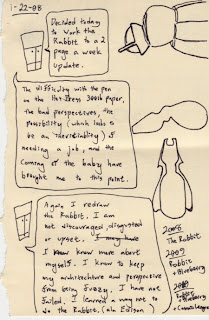 1-22-08
Decided today
to work the
Rabbit to a 2
page a week
update.
The difficulty with the pen
on the Hot Press 300lb paper,
the bad perspectives, the
possibility (which leads to
be an inevitability) of
needing a job, and the
coming of the baby have
brought me to this point.
Again I redraw
the Rabbit. I am
not discouraged, disgusted
or upset. I may have
I know more about
myself. I know to keep
my architecture and perspective
from being fuzzy. I have not
failed, I learned a way not to
do the Rabbit. (ala Edison)
2008
The Rabbit
2009
Rabbit
+ Blueberry
Rabbit
+ Blueberry